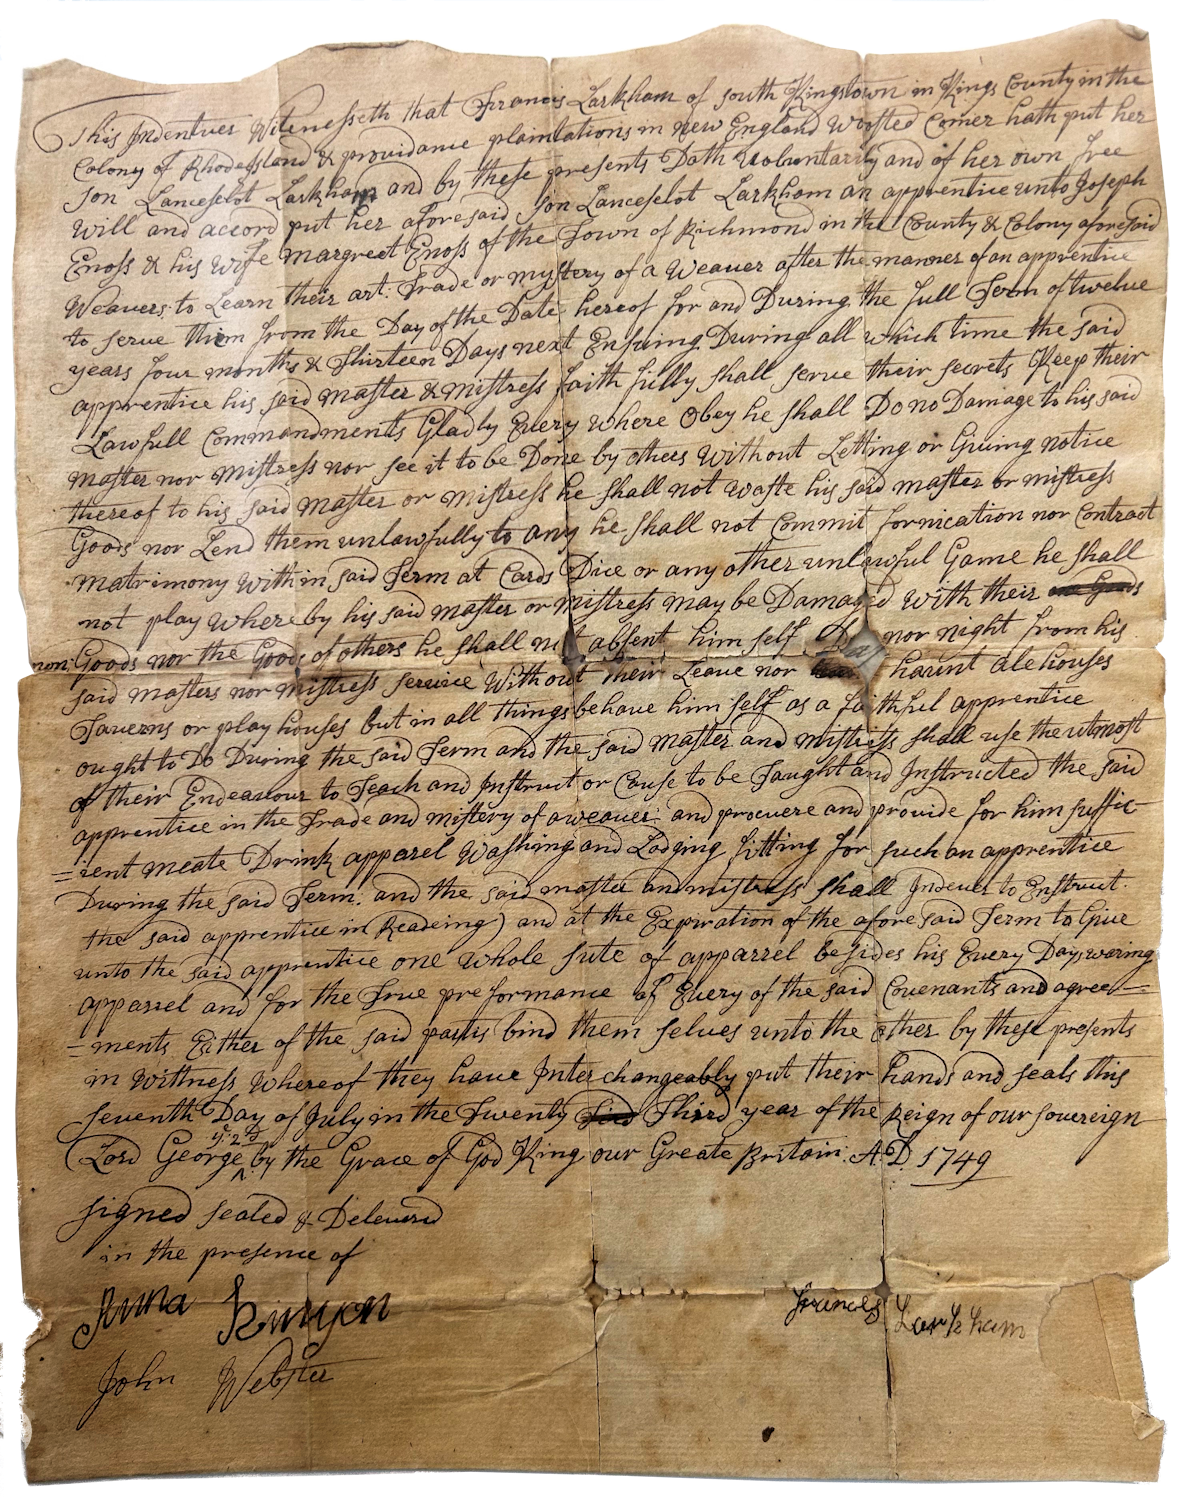 This Indentuer Witnesseth that Francis Larkham of south Kingstown in Kings County in the
Colony of Rhodeisland & providance plaintations in new England Woosted Comer hath put her
son Lanceslot Larkham and by these presents Doth Voluntarily and of her own free
Will and accord put her aforesaid son Lanceslot Larkham an apprentice unto Joseph
Enoss & his Wife Margreet Enoss of the Town of Richmond in the County & Colony aforesaid
Weavers to Learn their art: Trade or mystery of a Weaver after the manner of an apprentice
to serve them from the Day of the Date hereof for and During the full Term of twelve
years four months & Thirteen Days next Ensuing During all which time the said
apprentice his said master & mistress faith fully shall serve their secrets Keep their
Lawfull Commandments Gladly Every where Obey he shall Do no Damage to his said
master nor mistress nor see it to be Done by others Without Letting or Giving notice
thereof to his said master or mistress he shall not Waste his said master or mistress
Goods nor Lend them unlawfully to any he shall not Commit fornication nor Contract
matrimony Within said Term at Cards Dice or any other unlawful Game he shall
not play Where by his said master or mistress may be Damaged With their
non: Goods nor the Goods of others he shall not absent him self Day nor night from his
said masters nor mistress service Without their Leave nor haunt alehouses
Taverns or play houses but in all things behave him self as a faithful apprentice
ought to Do During the said Term and the said master and mistress shall use the utmost
of their Endeavour to Teach and Instruct or Cause to be Taught and Instructed the said
apprentice in the Trade and mistery of a weaver: and procuere and provide for him suffic
=ient meate Drink apparel Washing and Lodging fitting for such an apprentice
During the said Term: and the said master an mistress shall Indever to Enstruct.
the said apprentice in Readeing) and at the Expiration of the aforesaid Term to Give
unto the said apprentice one whole sute of apparrel besides his Every Day wering
apparrel and for the True preformance of Every of the said Covenants and agree=
=ments Either of the said partis bind them selves unto the other by these presents
in Wittness Whereof they have Interchangeably put their hands and seals this
seventh Day of July in the Twenty Third year of the Reign of our sovereign
Lord George ye 2d by the Grace of God King our Greate Britain: A:D: 1749
signed sealed & Delevered
in the presence of
Anna Kinyon
Frances Larkham
John Webster